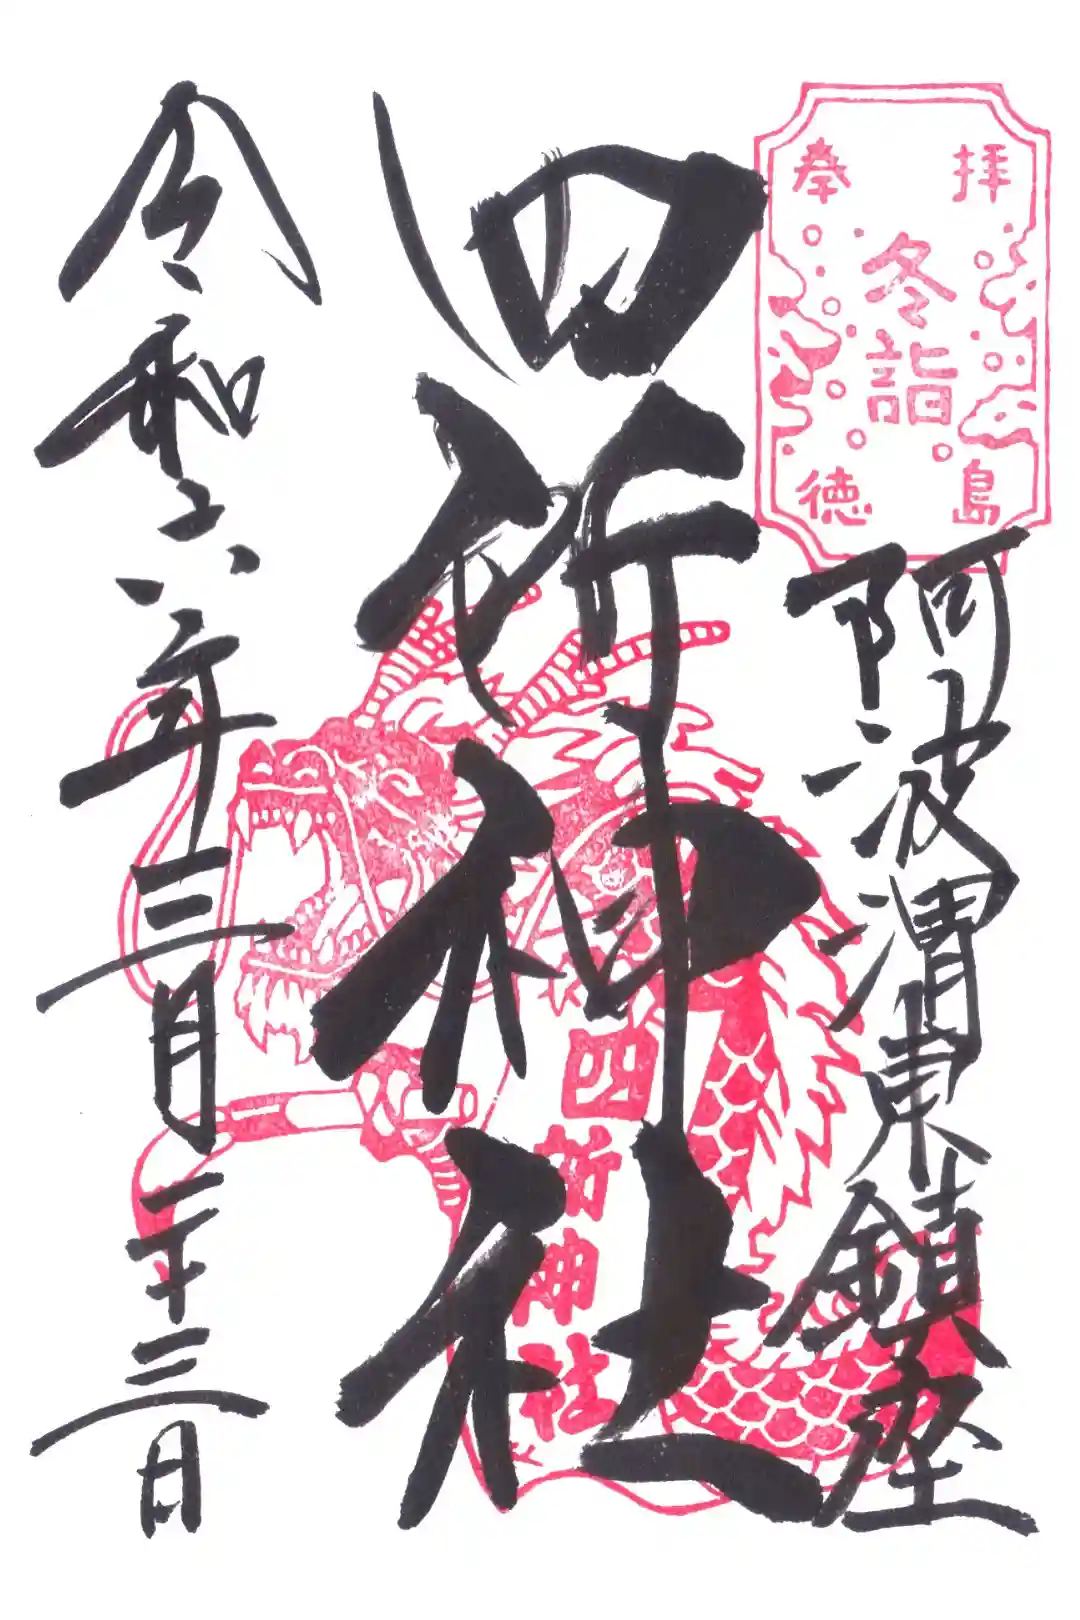 奉拝
冬詣
徳島
阿波渭東鎮座
四所神社
四所神社
令和六年三月二十三日